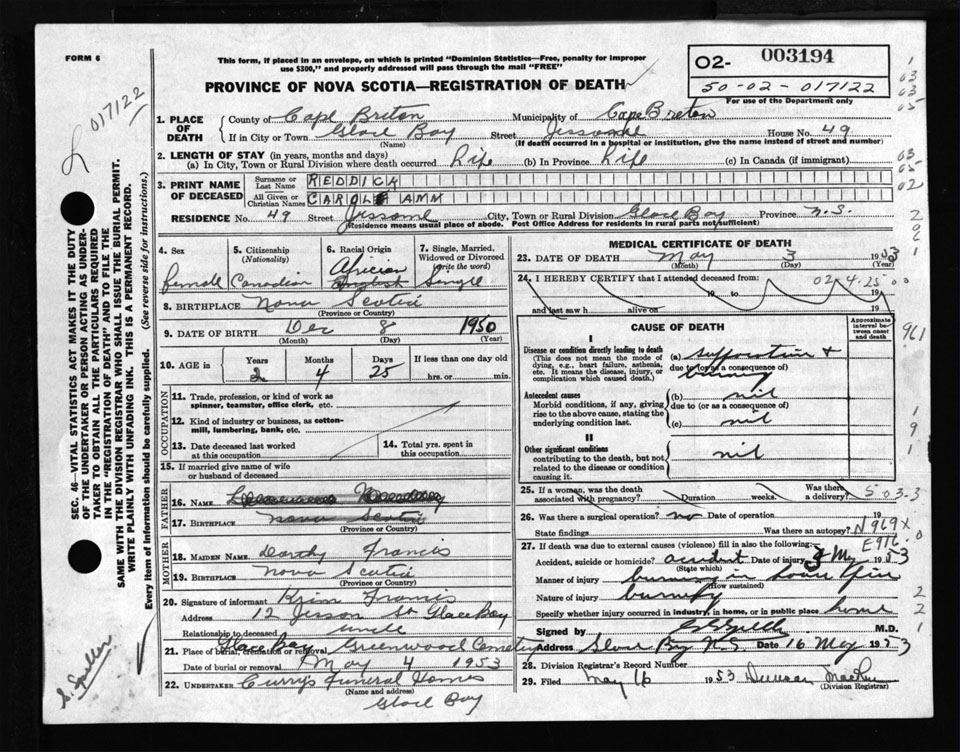 FORM 6
This form, if placed in an envelope, on which is printed "Dominion Statistics—Free, penalty for improper use $300," and properly addressed will pass through the mail "FREE"
PROVINCE OF NOVA SCOTIA—REGISTRATION OF DEATH
02- 003194
50-02-017122
For use of the Department only
017122
1. PLACE OF DEATH
County of Cape Breton Municipality of Cape Breton
If in City or Town Glace Bay Street Jessome House No. 49
(Name) (If death occurred in a hospital or institution, give the name instead of street and number)
2. LENGTH OF STAY (in years, months and days)
(a) In City, Town or Rural Division where death occurred Life (b) In Province Life (c) In Canada (if immigrant)
3. PRINT NAME OF DECEASED
Surname or Last Name REDDICK
All Given or Christian Names CAROL ANN
RESIDENCE No. 49 Street Jessome City, Town or Rural Division Glace Bay Province N.S.
(Residence means usual place of abode. Post Office Address for residents in rural parts not sufficient)
4. Sex female
5. Citizenship (Nationality) Canadian
6. Racial Origin African English
7. Single, Married, Widowed or Divorced (Write the word) Single
8. BIRTHPLACE Nova Scotia
(Province or Country)
9. DATE OF BIRTH Dec 8 1950
(Month) (Day) (Year)
10. AGE in Years 2 Months 4 Days 25 If less than one day old hrs. or min.
11. Trade, profession, or kind of work as spinner, teamster, office clerk, etc.
12. Kind of industry or business, as cotton-mill, lumbering, bank, etc.
13. Date deceased last worked at this occupation
14. Total yrs. spent in this occupation
15. If married give name of wife or husband of deceased
FATHER
16. NAME
17. BIRTHPLACE Nova Scotia
(Province or Country)
MOTHER
18. MAIDEN NAME Dorthy Francis
19. BIRTHPLACE Nova Scotia
(Province or Country)
20. Signature of informant Francis
Address 12 St Glace Bay
Relationship to deceased uncle
21. Place of burial, cremation or removal Glace Bay Greenwood Cemetery
Date of burial or removal May 4 1953
22. UNDERTAKER Currys Funeral Homes
(Name and address)
Glace Bay
MEDICAL CERTIFICATE OF DEATH
23. DATE OF DEATH May 3 1953
(Month) (Day) (Year)
24. I HEREBY CERTIFY that I attended deceased from:
02 4-25
19 to 19
and last saw h alive on 19
CAUSE OF DEATH
Approximate interval between onset and death
I
Disease or condition directly leading to death
(This does not mean the mode of dying, e.g., heart failure, asthenia, etc. It means the disease, injury, or complication which caused death.)
(a) suffocation +
due to (or as a consequence of)
burning
Antecedent causes
Morbid conditions, if any, giving rise to the above cause, stating the underlying condition last.
(b) nil
due to (or as a consequence of)
(c) nil
II
Other significant conditions contributing to the death, but not related to the disease or condition causing it.
nil
25. If a woman, was the death associated with pregnancy? Duration weeks. Was there a delivery? 503-3
26. Was there a surgical operation? no Date of operation
State findings Was there an autopsy? N969X
E916.0
27. If death was due to external causes (violence) fill in also the following:
Accident, suicide or homicide? accident Date of injury 3 May 1953
(State which)
Manner of injury burning in house fire
(How sustained)
Nature of injury burning
Specify whether injury occurred in industry, in home, or in public place home
Signed by M.D.
Address Glace Bay N.S Date 16 May 1953
28. Division Registrar's Record Number
29. Filed May 16 1953 Duncan
(Division Registrar)
SEC. 46—VITAL STATISTICS ACT MAKES IT THE DUTY OF THE UNDERTAKER OR PERSON ACTING AS UNDERTAKER TO OBTAIN ALL THE PARTICULARS REQUIRED IN THE "REGISTRATION OF DEATH" AND TO FILE THE SAME WITH THE DIVISION REGISTRAR WHO SHALL ISSUE THE BURIAL PERMIT.
WRITE PLAINLY WITH UNFADING INK. THIS IS A PERMANENT RECORD.
Every item of information should be carefully supplied. (See reverse side for instructions.)